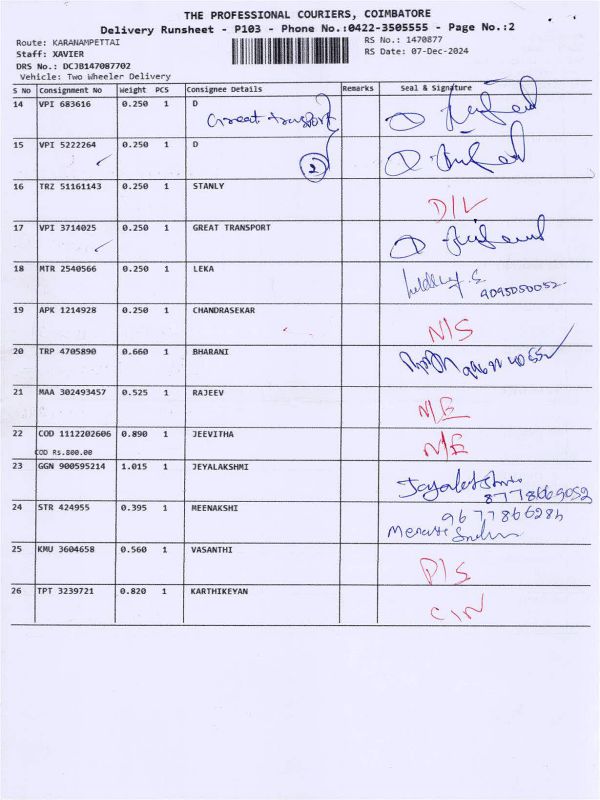 THE PROFESSIONAL COURIERS, COIMBATORE
Delivery Runsheet - P103 - Phone No.:0422-3505555 - Page No.:2
Route: KARANAMPETTAI RS No.: 1470877
Staff: XAVIER RS Date: 07-Dec-2024
DRS No.: DCJB147087702
Vehicle: Two Wheeler Delivery
S No Consignment No Weight PCS Consignee Details Remarks Seal & Signature
14 VPI 683616 0.250 1 D
Great transport
15 VPI 5222264 0.250 1 D
2
16 TRZ 51161143 0.250 1 STANLY
D/L
17 VPI 3714025 0.250 1 GREAT TRANSPORT
18 MTR 2540566 0.250 1 LEKA
9095050052
19 APK 1214928 0.250 1 CHANDRASEKAR
N/S
20 TRP 4705890 0.660 1 BHARANI
21 MAA 302493457 0.525 1 RAJEEV
N/E
22 COD 1112202606 0.890 1 JEEVITHA
COD Rs.800.00 N/E
23 GGN 900595214 1.015 1 JEYALAKSHMI
24 STR 424955 0.395 1 MEENAKSHI
25 KMU 3604658 0.560 1 VASANTHI
P/S
26 TPT 3239721 0.820 1 KARTHIKEYAN
C/N